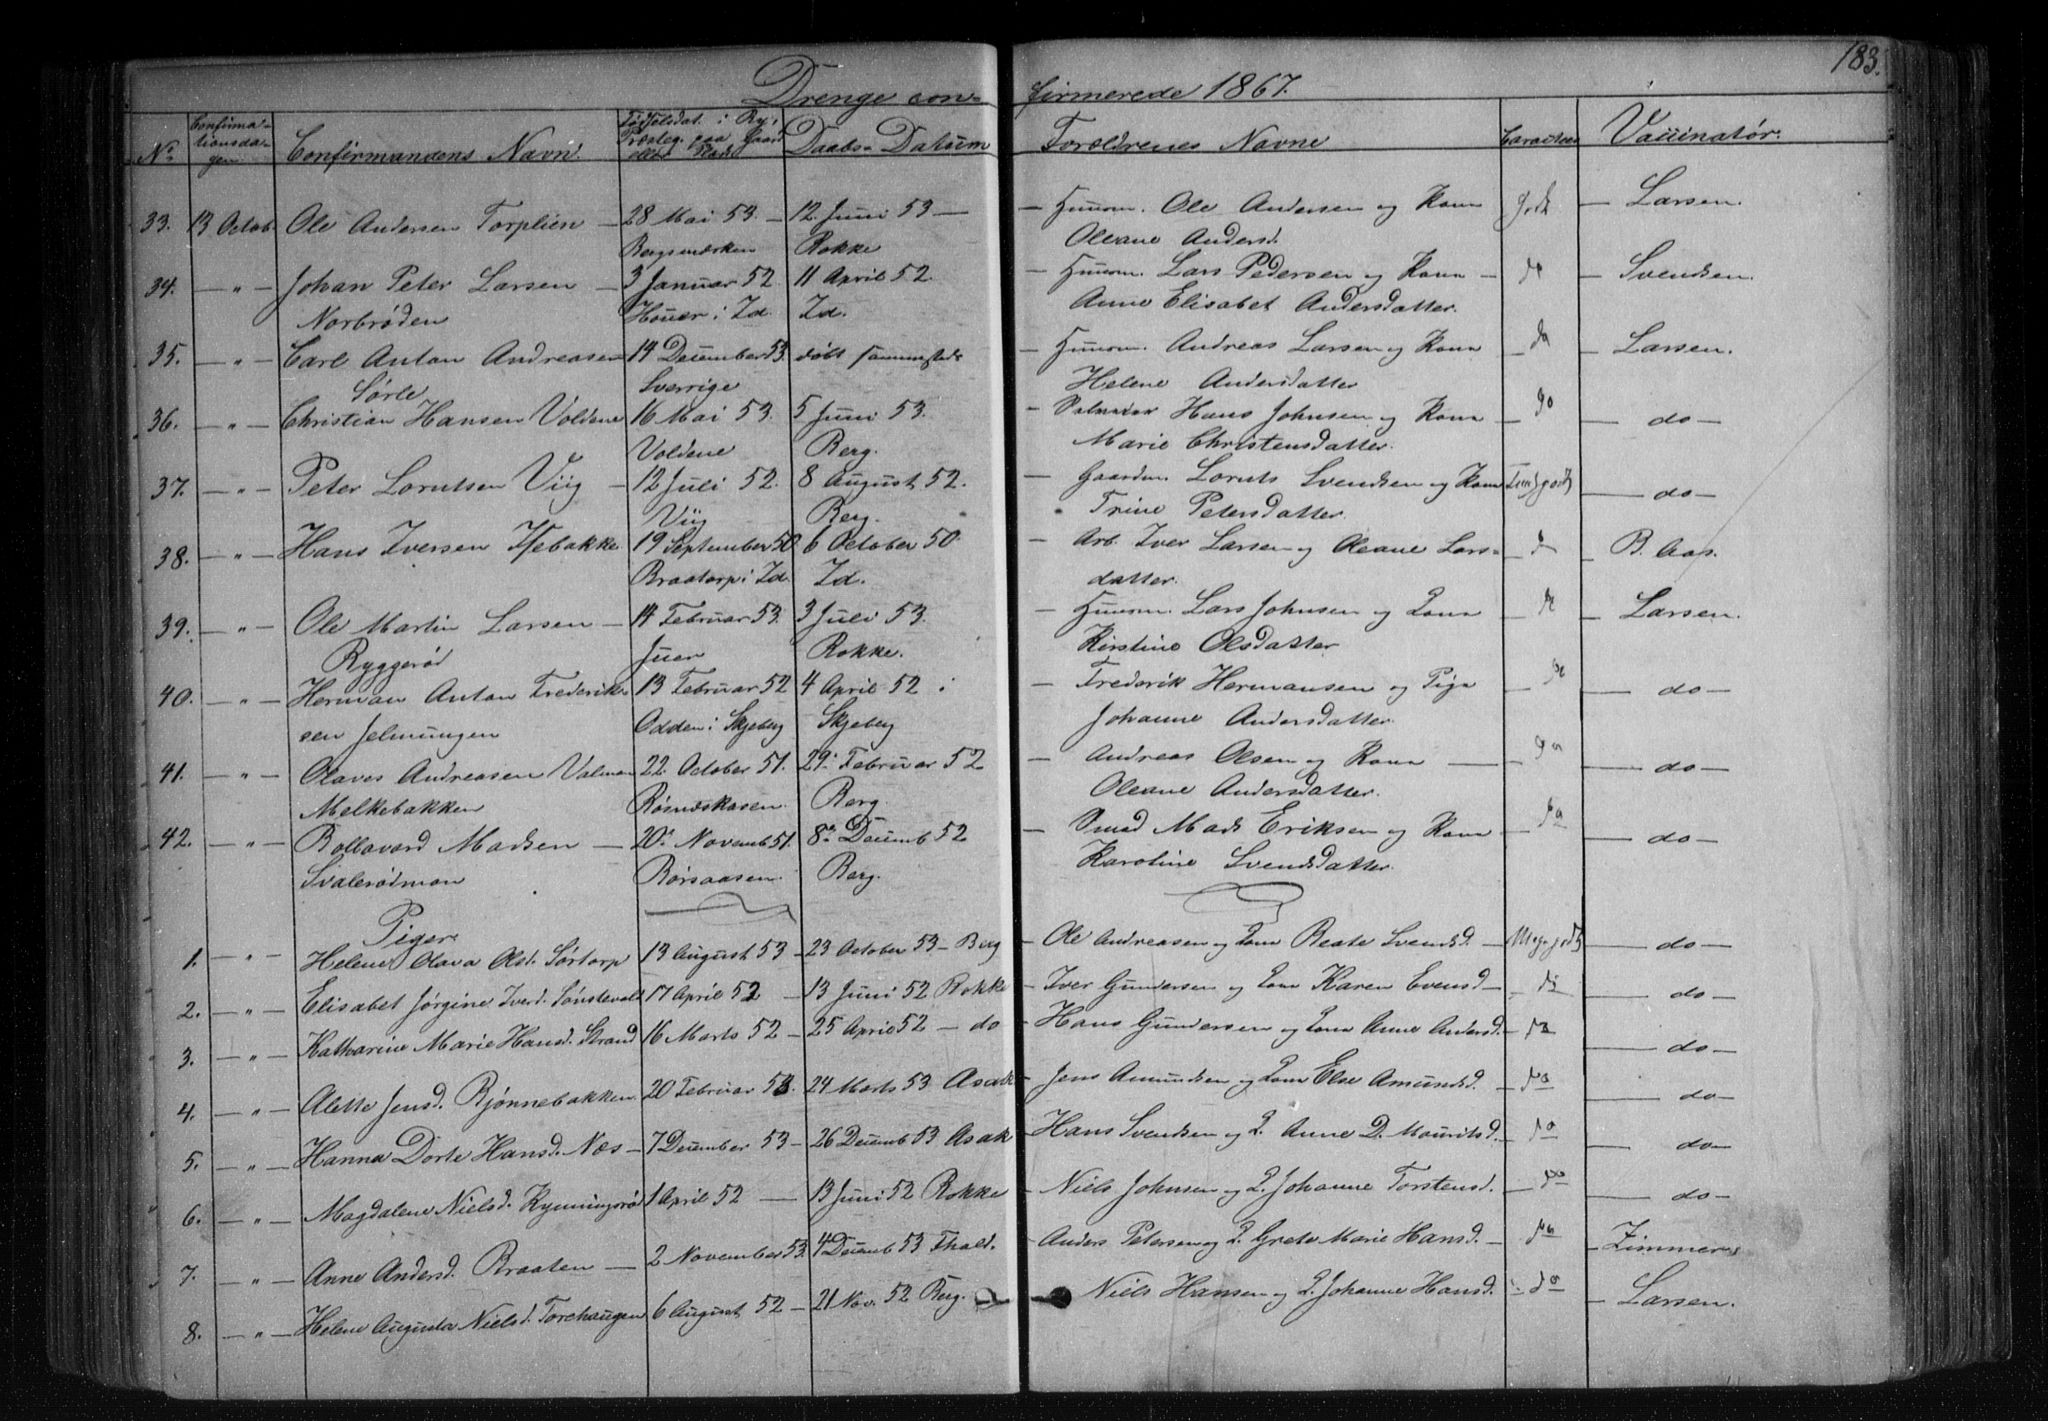 183.
Drenge con- firmerede 1867.
No. Confirma- tionsda- gen Confirmandens Navn Daabs-Datum Forældrenes Navne Caracteer Vaccinatør.
33. 13 Octob. Ole Andersen Torplien — 28 Mai 53. — 12. Juni 53 — — Huusm. Ole Andersen og Kone Godt — Larsen.
Rokke Oleane Andersd.
34. — " — Johan Peter Larsen — 3 Januar 52 11 April 52. — Huusm. Lars Pedersen og Kone — do — Svendsen.
Norbrøden Houer i Id. Id. Anne Elisabet Andersdatter.
35. — " — Carl Anton Andreasen 14 December 53. døbt sammesteds — Huusm. Andreas Larsen og Kone — do — Larsen.
Sørli Sverrige Helene Andersdatter
36. — " — Christian Hansen Voldene 16 Mai 53. 5 Juni 53. — Hans Johnsen og Kone — do — do —
Voldene Berg. Marie Christensdatter.
37. — " — Peter Lorntsen Viig — 12 Juli 52. 8 August 52. — Gaardm. Lornts Svendsen og Kone — do —
Viig Berg. Trine Petersdatter.
38. — " — Hans Iversen Isebakke 19 September 50 6 October 50. — Arb. Iver Larsen og Oleane Lars- — B. Aas.
Braatorp i Id. Id. datter.
39. — " — Ole Martin Larsen — 14 Februar 53. 3 Juli 53. — Huusm. Lars Johnsen og Kone — do — Larsen.
Ryggerød Rokke. Kirstine Olsdatter
40. — " — Herman Anton Frederik- 13 Februar 52 4 April 52 i — Frederik Hermansen og Pige — do — do —
sen Jelmungen Odden i Skjeberg Skjeberg Johanne Andersdatter.
41. — " — Olaves Andreasen Valmen 22. October 51. 29. Februar 52 — Andreas Olsen og Kone — do — do —
Melkebakken Røsneskasen. Berg. Oleane Andersdatter.
42. — " — Bollavard Madsen — 20. Novemb 51. 8. Decemb 52 — Smed Mads Eriksen og Kone — do — do —
Svalerødmon Børsaasen. Berg. Karoline Svendsdatter.
Piger.
1. — " — Helene Olava Olsd. Sørtorp 13 August 53 — 23 October 53 — Berg — Ole Andreasen og Kone Beate Svendsd. — Meg. godt — do —
2. — " — Elisabet Jørgine Iversd. Sønstevold 17 April 52 — 13 Juni 52 Rokke — Iver Gundersen og Kone Karen Evensd — do — do —
3. — " — Katharine Marie Hansd. Strand 16 Marts 52 — 25 April 52 — do — Hans Gundersen og Kone Anne Andersd. — do — do —
4. — " — Alette Jensd. Bjønnebakken 20 Februar 53. 24 Marts 53 Asak — Jens Amundsen og Kone Else Amundsd. — do — do —
5. — " — Hanna Dorte Hansd. Næs — 7 December 53 — 26 Decemb 53 Asak — Hans Svendsen og K. Anne D. Mauritsd. — do — do —
6. — " — Magdalene Nielsd. Rymningsrød 1 April 52 — 13 Juni 52 Rokke — Niels Johnsen og K. Johanne Torstensd. — do — do —
7. — " — Anne Andersd. Braaten — 2 November 53. 4 Decemb 53 Fhald. — Anders Petersen og K. Grete Marie Hansd. — do — Zimmer
8. — " — Helene Augusta Nielsd. Torehaugen 6 August 52 — 21 Nov. 52 Berg. — Niels Hansen og K. Johanne Hansd. — do — Larsen.